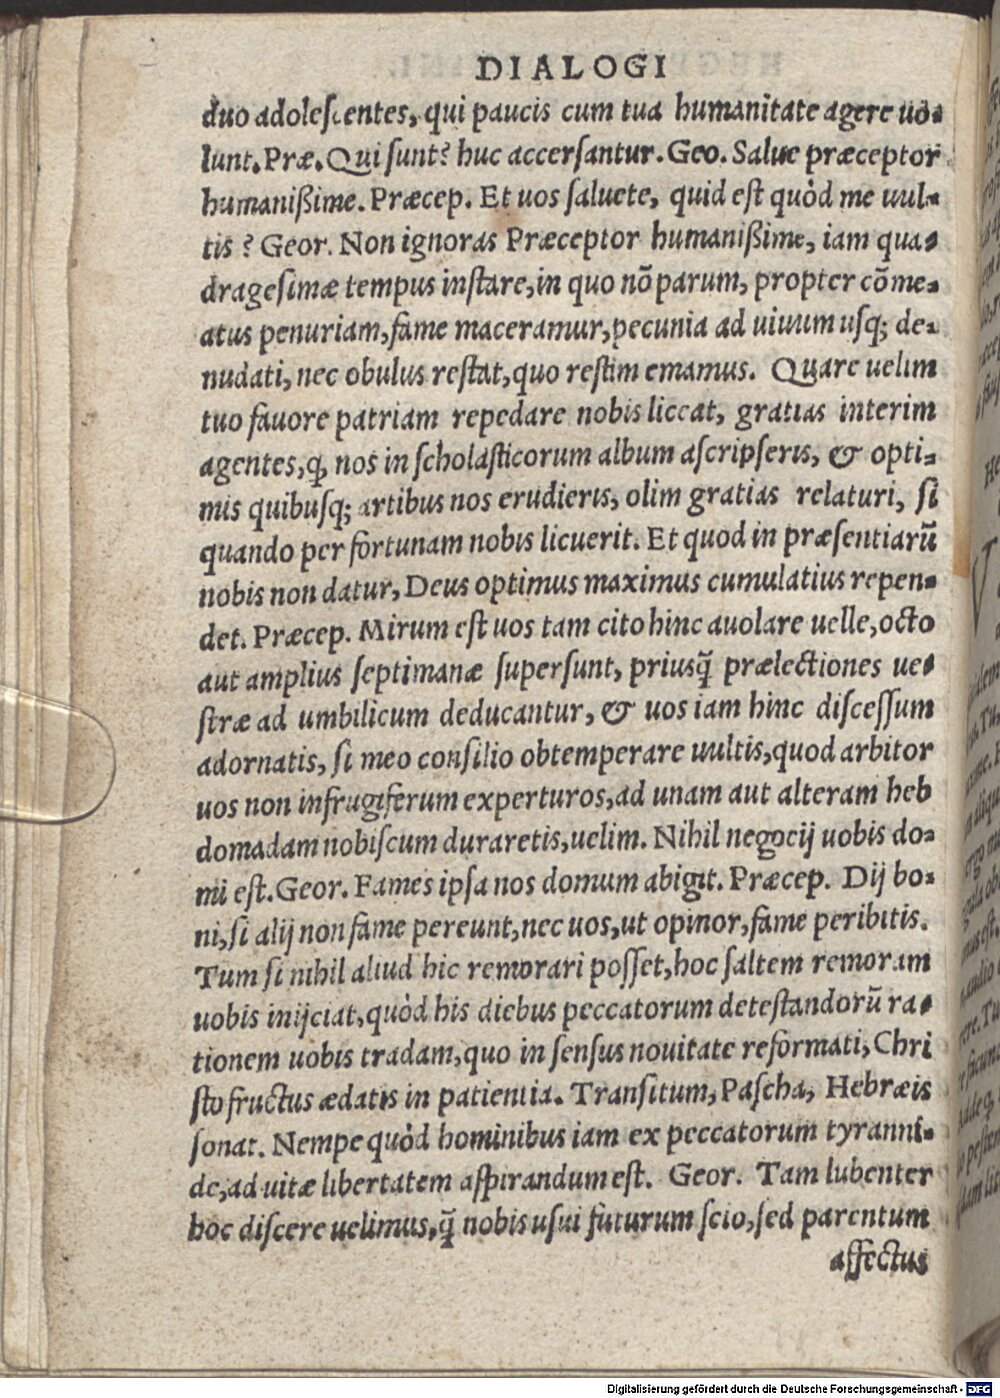 DIALOGI
duo adoleſcentes, qui paucis cum tua humanitate agere uo-
lunt. Præ. Qui ſunt? huc accerſantur. Geo. Salue præceptor
humanißime. Præcep. Et uos ſaluete, quid eſt quòd me uul-
tis? Geor. Non ignoras Præceptor humanißime, iam qua-
drageſimæ tempus inſtare, in quo nō parum, propter cōme-
atus penuriam, fame maceramur, pecunia ad uiuum uſq; de-
nudati, nec obulus reſtat, quo reſtim emamus. Quare uelim
tuo fauore patriam repedare nobis liceat, gratias interim
agentes, ꝙ nos in ſcholaſticorum album aſcripſeris, & opti-
mis quibuſq; artibus nos erudieris, olim gratias relaturi, ſi
quando per fortunam nobis licuerit. Et quod in præſentiarũ
nobis non datur, Deus optimus maximus cumulatius repen-
det. Præcep. Mirum eſt uos tam cito hinc auolare uelle, octo
aut amplius ſeptimanæ ſuperſunt, priusq̃ prælectiones ue-
ſtræ ad umbilicum deducantur, & uos iam hinc diſceſſum
adornatis, ſi meo conſilio obtemperare uultis, quod arbitor
uos non infrugiferum experturos, ad unam aut alteram heb
domadam nobiſcum duraretis, uelim. Nihil negocij uobis do-
mi eſt. Geor. Fames ipſa nos domum abigit. Præcep. Dij bo-
ni, ſi alij non fame pereunt, nec uos, ut opinor, fame peribitis.
Tum ſi nihil aliud hic remorari poſſet, hoc ſaltem remoram
uobis inijciat, quòd his diebus peccatorum deteſtandorũ ra-
tionem uobis tradam, quo in ſenſus nouitate reformati, Chri
ſto fructus ædatis in patientia. Tranſitum, Paſcha, Hebræis
ſonat. Nempe quòd hominibus iam ex peccatorum tyranni-
de, ad uitæ libertatem aſpirandum eſt. Geor. Tam lubenter
hoc diſcere uelimus, q̃ nobis uſui futurum ſcio, ſed parentum
affectus
Digitalisierung gefördert durch die Deutsche Forschungsgemeinschaft - DFG